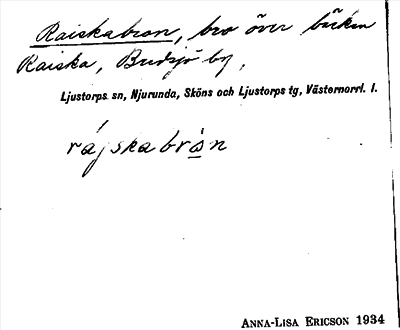 Raiskabron, bro över bäcken
Raiska, Bredsjö by,
Ljustorps sn, Njurunda, Sköns och Ljustorps tg, Västernorrl. l.
rájskabròn
ANNA-LISA ERICSON 1934